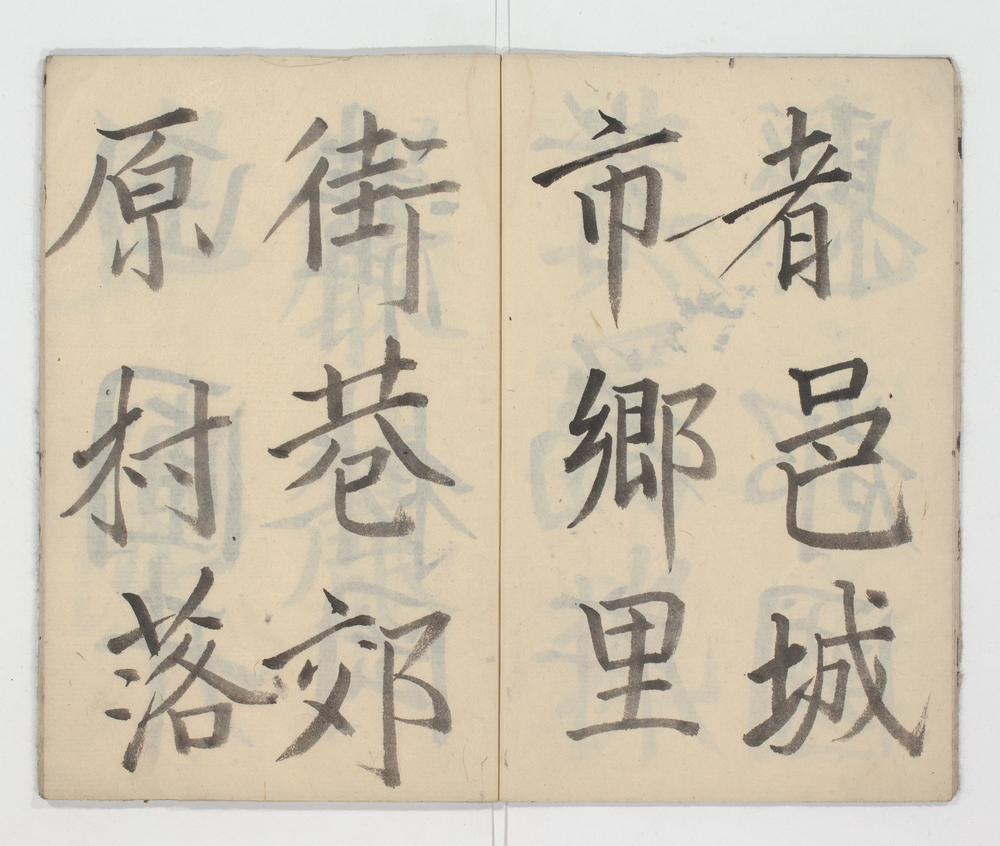 者邑城
市鄉里
街巷郊
原村落